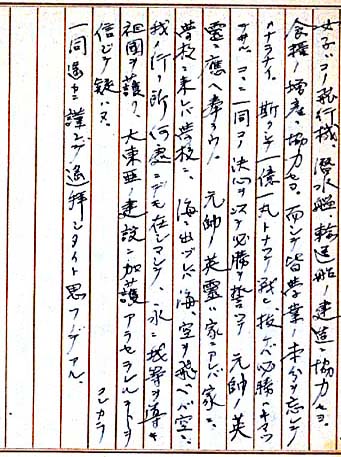 女子ハコノ飛行機、潜水艦、輸送船ノ建造ニ協力セヨ。
食糧ノ増産ニ協力セヨ。而シテ皆学業ノ本分ヲ忘レテ
ハナラナイ。斯クテ一億一丸トナッテ戦ヒ抜ケバ必勝ハキマッ
テヰル。ココニ一同コノ決心ニテ必勝ヲ誓ッテ 元帥ノ英
霊ニ應ヘ奉ラウ。 元帥ノ英霊ハ家ニアレバ家ニ、
学校ニ来レバ学校ニ、海ニ出ヅレバ海、空ヲ飛ベバ空ニ、
我ノ行ク所何處ニデモ在シマシテ、永ニ我等ヲ導キ
祖國ヲ護リ、大東亜ノ建設ニ加護アラセラレルコトヲ
信ジテ疑ハヌ。 コレカラ
一同遥カニ謹ンデ遥拝シタイト思フノデアル。